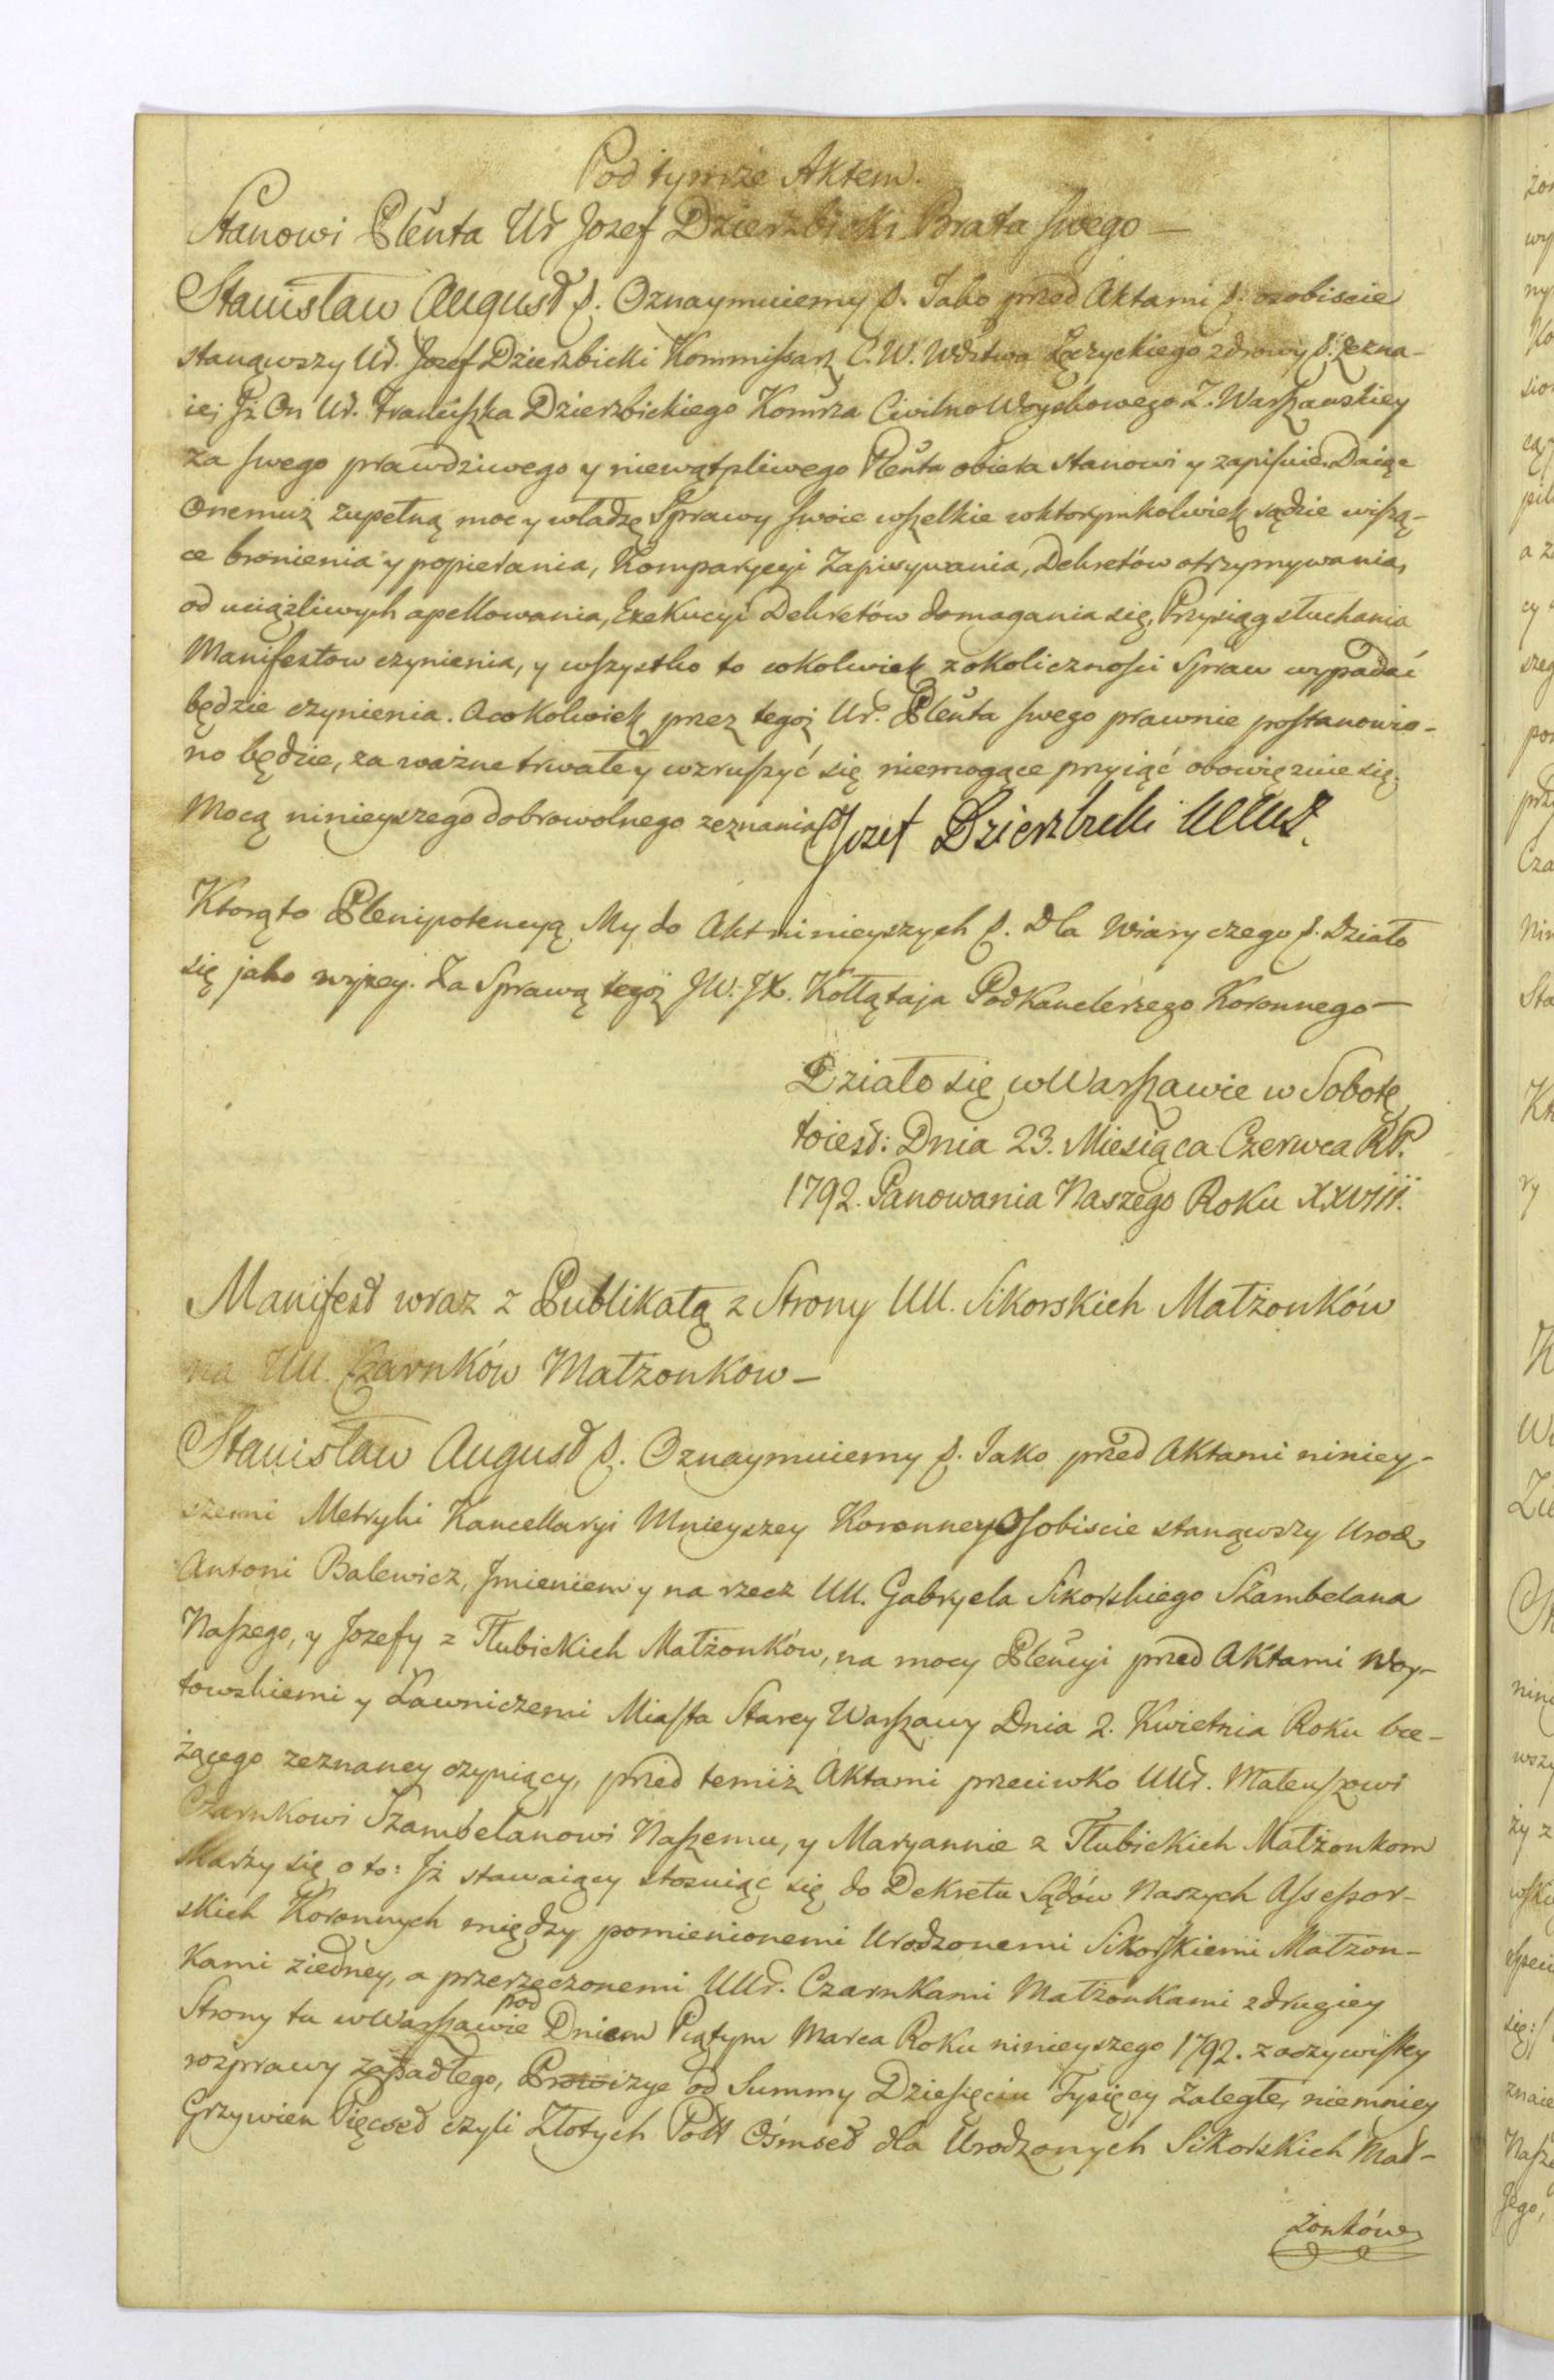 Pod tymże Aktem.
Stanowi Plenta Ur Jozef Dzierzbicki Brata swego —
Stanisław August p. Oznaymuiemy p. Jako przed Aktami p. osobiscie
stanąwszy Ur. Jozef Dzierzbicki Kommissarz C. W. Wdztwa Łęczyckiego zdrowy p. zezna-
ie; Jż On Ur. Franciszka Dzierzbickiego Komrza Civilno Woyskowego Z. Warszawskiey
za swego prawdziwego y niewątpliwego Plenta obiera stanowi y zapisuie. Daiąc
Onemuż zupełną moc y władzę Sprawy swoie wszelkie wktorymkolwiek sądzie wiszą-
ce bronienia y popierania, Komparycyi Zapisywania, Dekretów otrzymywania,
od uciążliwych apellowania, Exekucyi Dekretów domagania się, Przysiąg słuchania
Manifestow czynienia, y wszystko to cokolwiek zokoliczności Spraw wypadać
będzie czynienia. Acokolwiek przez tegoż Ur. Plenta swego prawnie postanowio-
no będzie, za ważne trwałe y wzruszyć się niemogące przyiąć obowięzuie się.
Mocą ninieyszego dobrowolnego zeznania p Jozef Dzierzbicki
Ktorąto Plenipotencyą My do Akt ninieyszych p. Dla Wiary czego p. Działo
się jako wyzey. Za Sprawą tegoż JW. JX. Kołłątaja Podkanclerzego Koronnego —
Działo się wWarszawie w Sobotę
toiest: Dnia 23. Miesiąca Czerwca RP.
1792. Panowania Naszego Roku XXVIII.
Manifest wraz z Publikatą z Strony UU. Sikorskich Małżonków
na UU. Czarnków Małżonkow —
Stanisław August p. Oznaymuiemy p. Jako przed Aktami niniey-
szemi Metryki Kancellaryi Mnieyszey Koronney Osobiscie stanąwszy Urodz
Antoni Balewicz, Jmieniem y na rzecz UU. Gabryela Sikorskiego Szambelana
Naszego, y Jozefy z Tłubickich Małżonków, na mocy Plencyi przed Aktami Woy-
towskiemi y Ławniczemi Miasta Starey Warszawy Dnia 2. Kwietnia Roku bie-
żącego zeznaney czyniący, przed temiż Aktami przeciwko UUr. Mateuszowi
Czarnkowi Szambelanowi Naszemu, y Maryannie z Tłubickich Małżonkom
skarży się o to: Jż stawaiący stosuiąc się do Dekretu Sądów Naszych Assessor-
skich Koronnych między pomienionemi Urodzonemi Sikorskiemi Małżon-
kami ziedney, a przerzeczonemi UUr. Czarnkami Małżonkami zdrugiey
Strony tu wWarszawie pod Dniem Piątym Marca Roku ninieyszego 1792. zoczywistey
rozprawy zapadłego, Prowizye od Summy Dziesięciu Tysięcy zaległe, niemniey
Grzywien Pięcset czyli Złotych Pols Ośmset dla Urodzonych Sikorskich Mał-
żonków